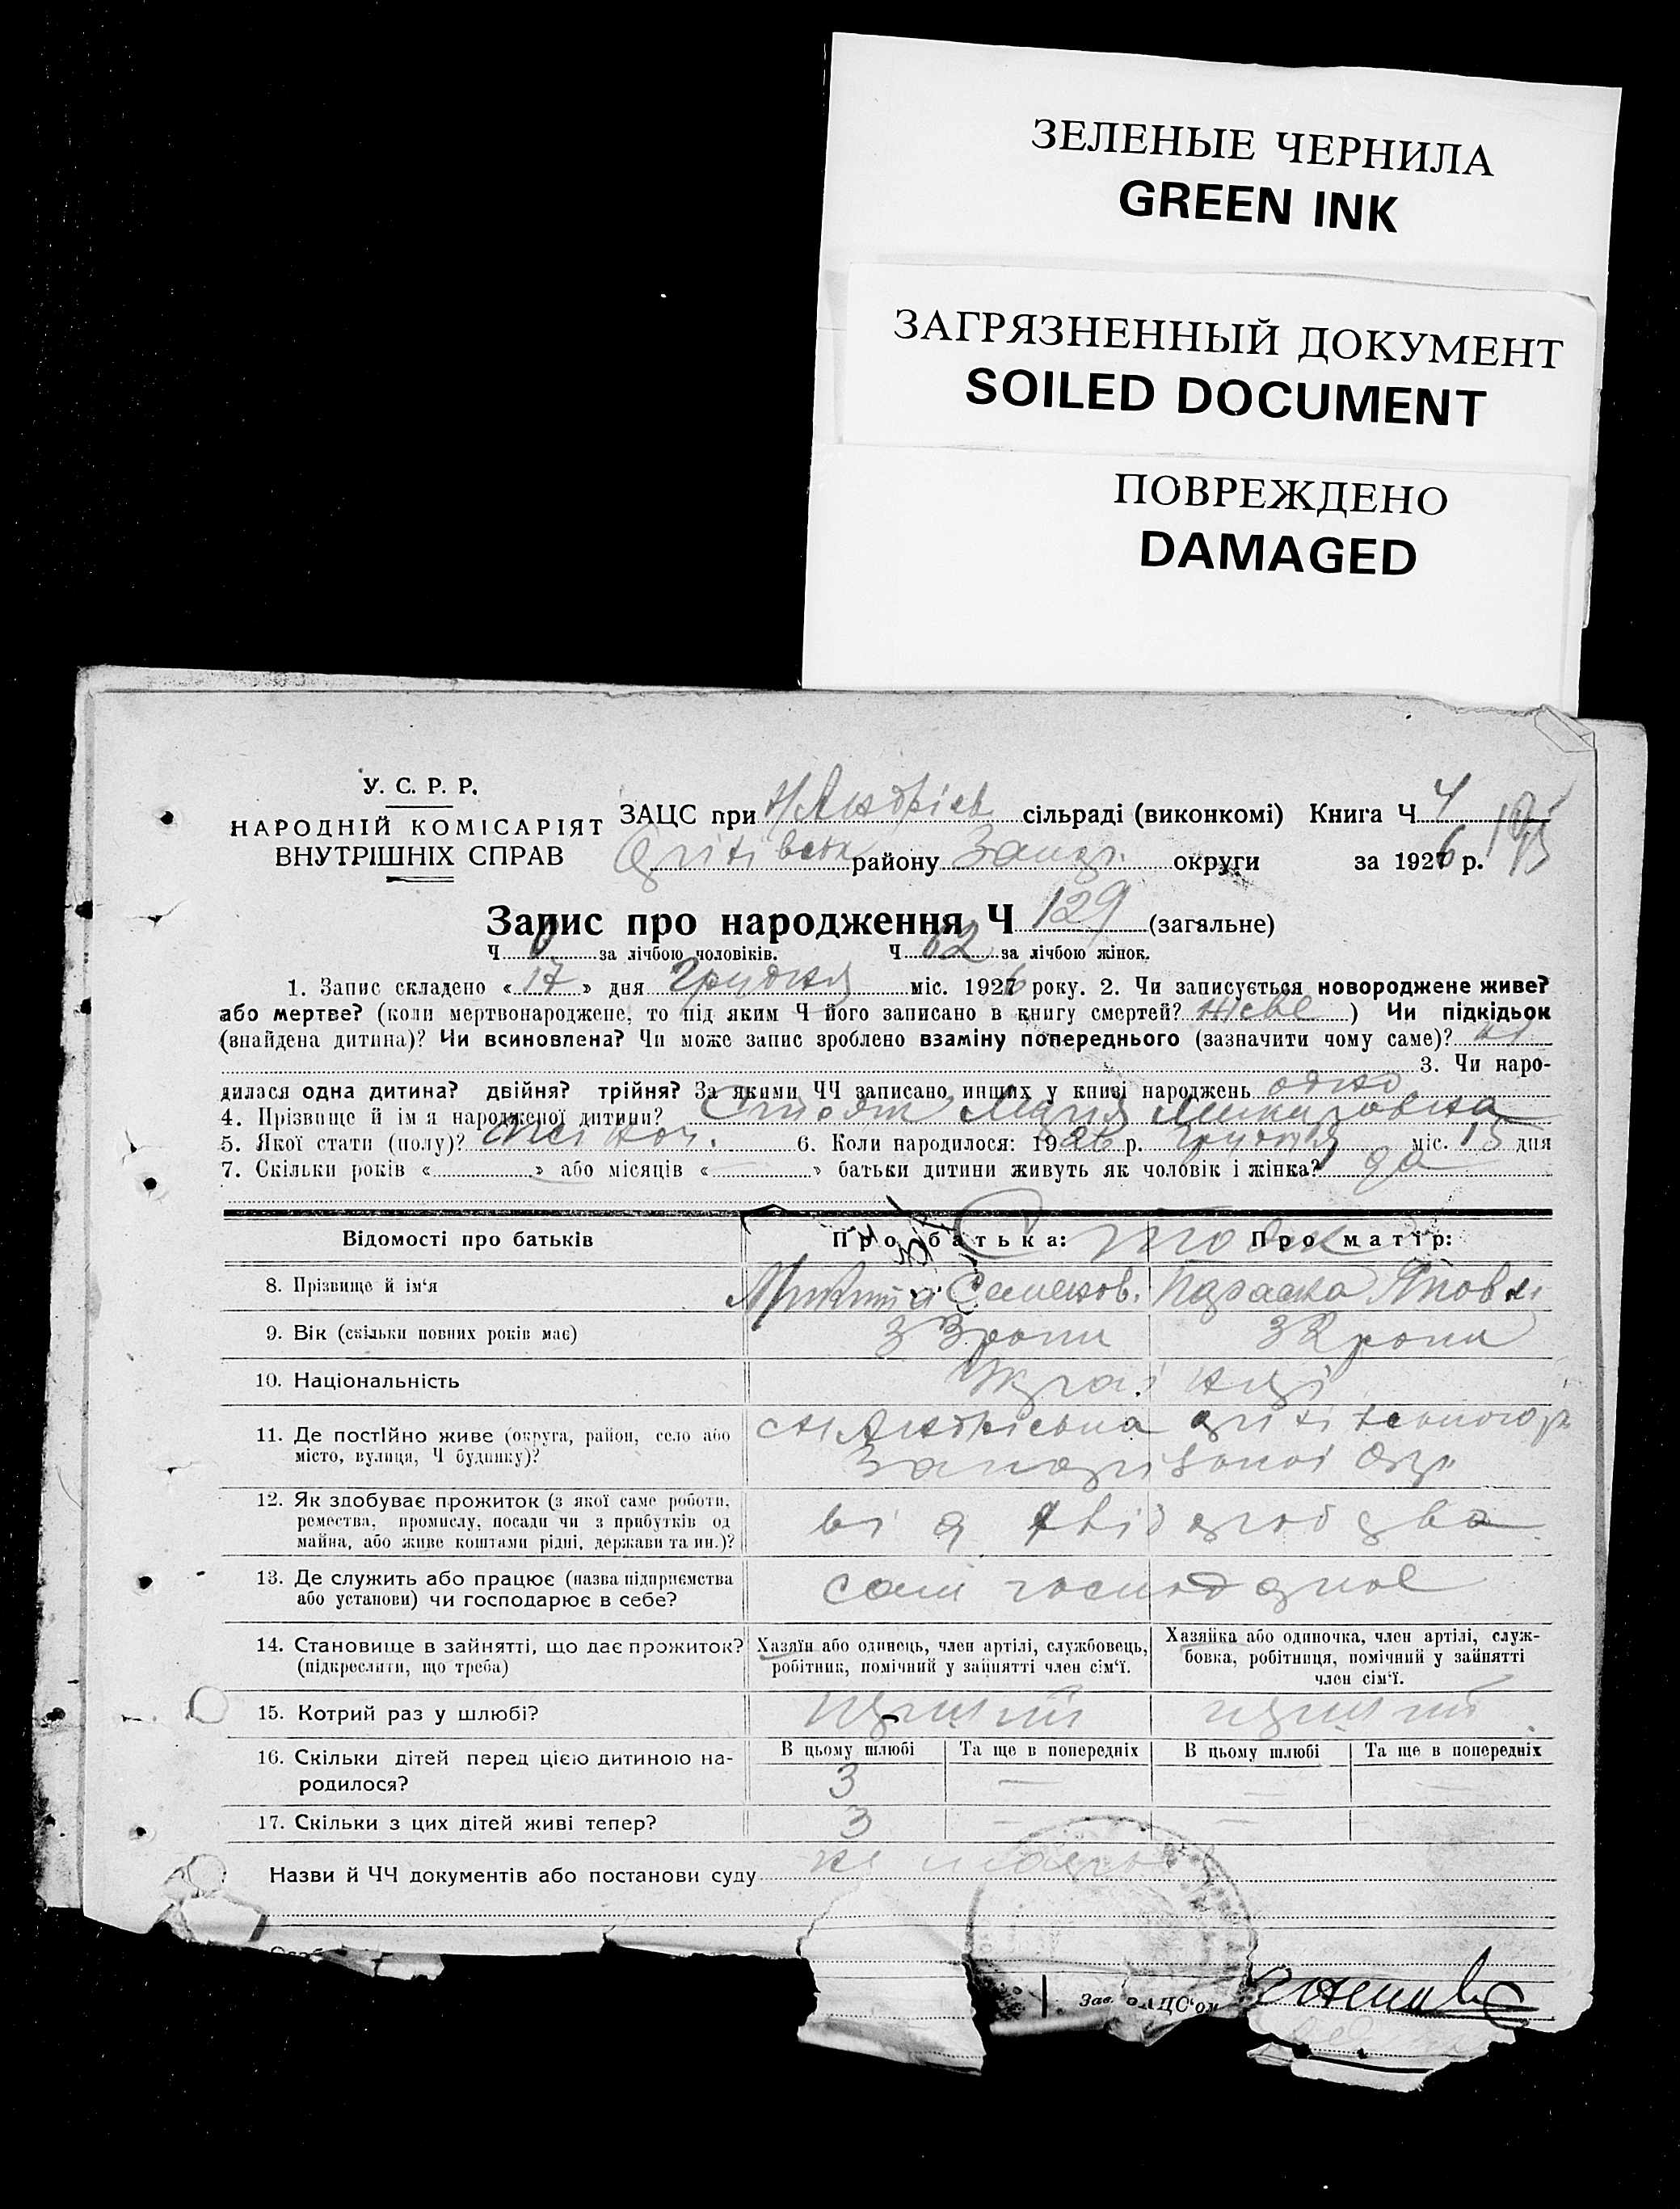 ЗЕЛЕНЫЕ ЧЕРНИЛА
GREEN INK
ЗАГРЯЗНЕННЫЙ ДОКУМЕНТ
SOILED DOCUMENT
ПОВРЕЖДЕНО
DAMAGED
У. С. Р. Р.
НАРОДНІЙ КОМІСАРІЯТ
ВНУТРІШНІХ СПРАВ
ЗАЦС при сільраді (виконкомі) Книга Ч 4
району округи за 1926 р.
Запис про народження Ч 129 (загальне)
Ч 0 за лічбою чоловіків. Ч 62 за лічбою жінок.
1. Запис складено « 17 » дня Грудня міс. 1926 року. 2. Чи записується новороджене живе?
або мертве? (коли мертвонароджене, то під яким Ч його записано в книгу смертей? живе ) Чи підкідьок
(знайдена дитина)? Чи всиновлена? Чи може запис зроблено взаміну попереднього (зазначити чому саме)?
3. Чи наро-
дилася одна дитина? двійня? трійня? За якими ЧЧ записано инших у книзі народжень одно
4. Прізвище й ім'я народженої дитини? Стоян Марія
5. Якої стати (полу)? жіноч. 6. Коли народилося: 1926 р. Грудня міс. 15 дня
7. Скільки років « » або місяців « — » батьки дитини живуть як чоловік і жінка? да
Відомості про батьків Про батька: Про матір:
Стоян
8. Прізвище й ім'я Микита Семенов. Параска Яковл
9. Вік (скільки повних років має) 33 роки 32 роки
10. Національність Українці
11. Де постійно живе (округа, район, село або
місто, вулиця, Ч будинку)?
Запорізької окр.
12. Як здобуває прожиток (з якої саме роботи,
ремества, промислу, посади чи з прибутків од
майна, або живе коштами рідні, держави та ин.)?
від хлібородства
13. Де служить або працює (назва підприємства
або установи) чи господарює в себе?
сам господарює
14. Становище в зайнятті, що дає прожиток?
(підкреслити, що треба)
Хазяїн або одинець, член артілі, службовець,
робітник, помічний у зайнятті член сім'ї.
Хазяйка або одиночка, член артілі, служ-
бовка, робітниця, помічний у зайнятті
член сім'ї.
15. Котрий раз у шлюбі? перший перший
16. Скільки дітей перед цією дитиною на-
родилося?
В цьому шлюбі Та ще в попередніх В цьому шлюбі Та ще в попередніх
3 — — —
17. Скільки з цих дітей живі тепер? 3 — — —
Назви й ЧЧ документів або постанови суду
Зав. ЗАЦС'ом